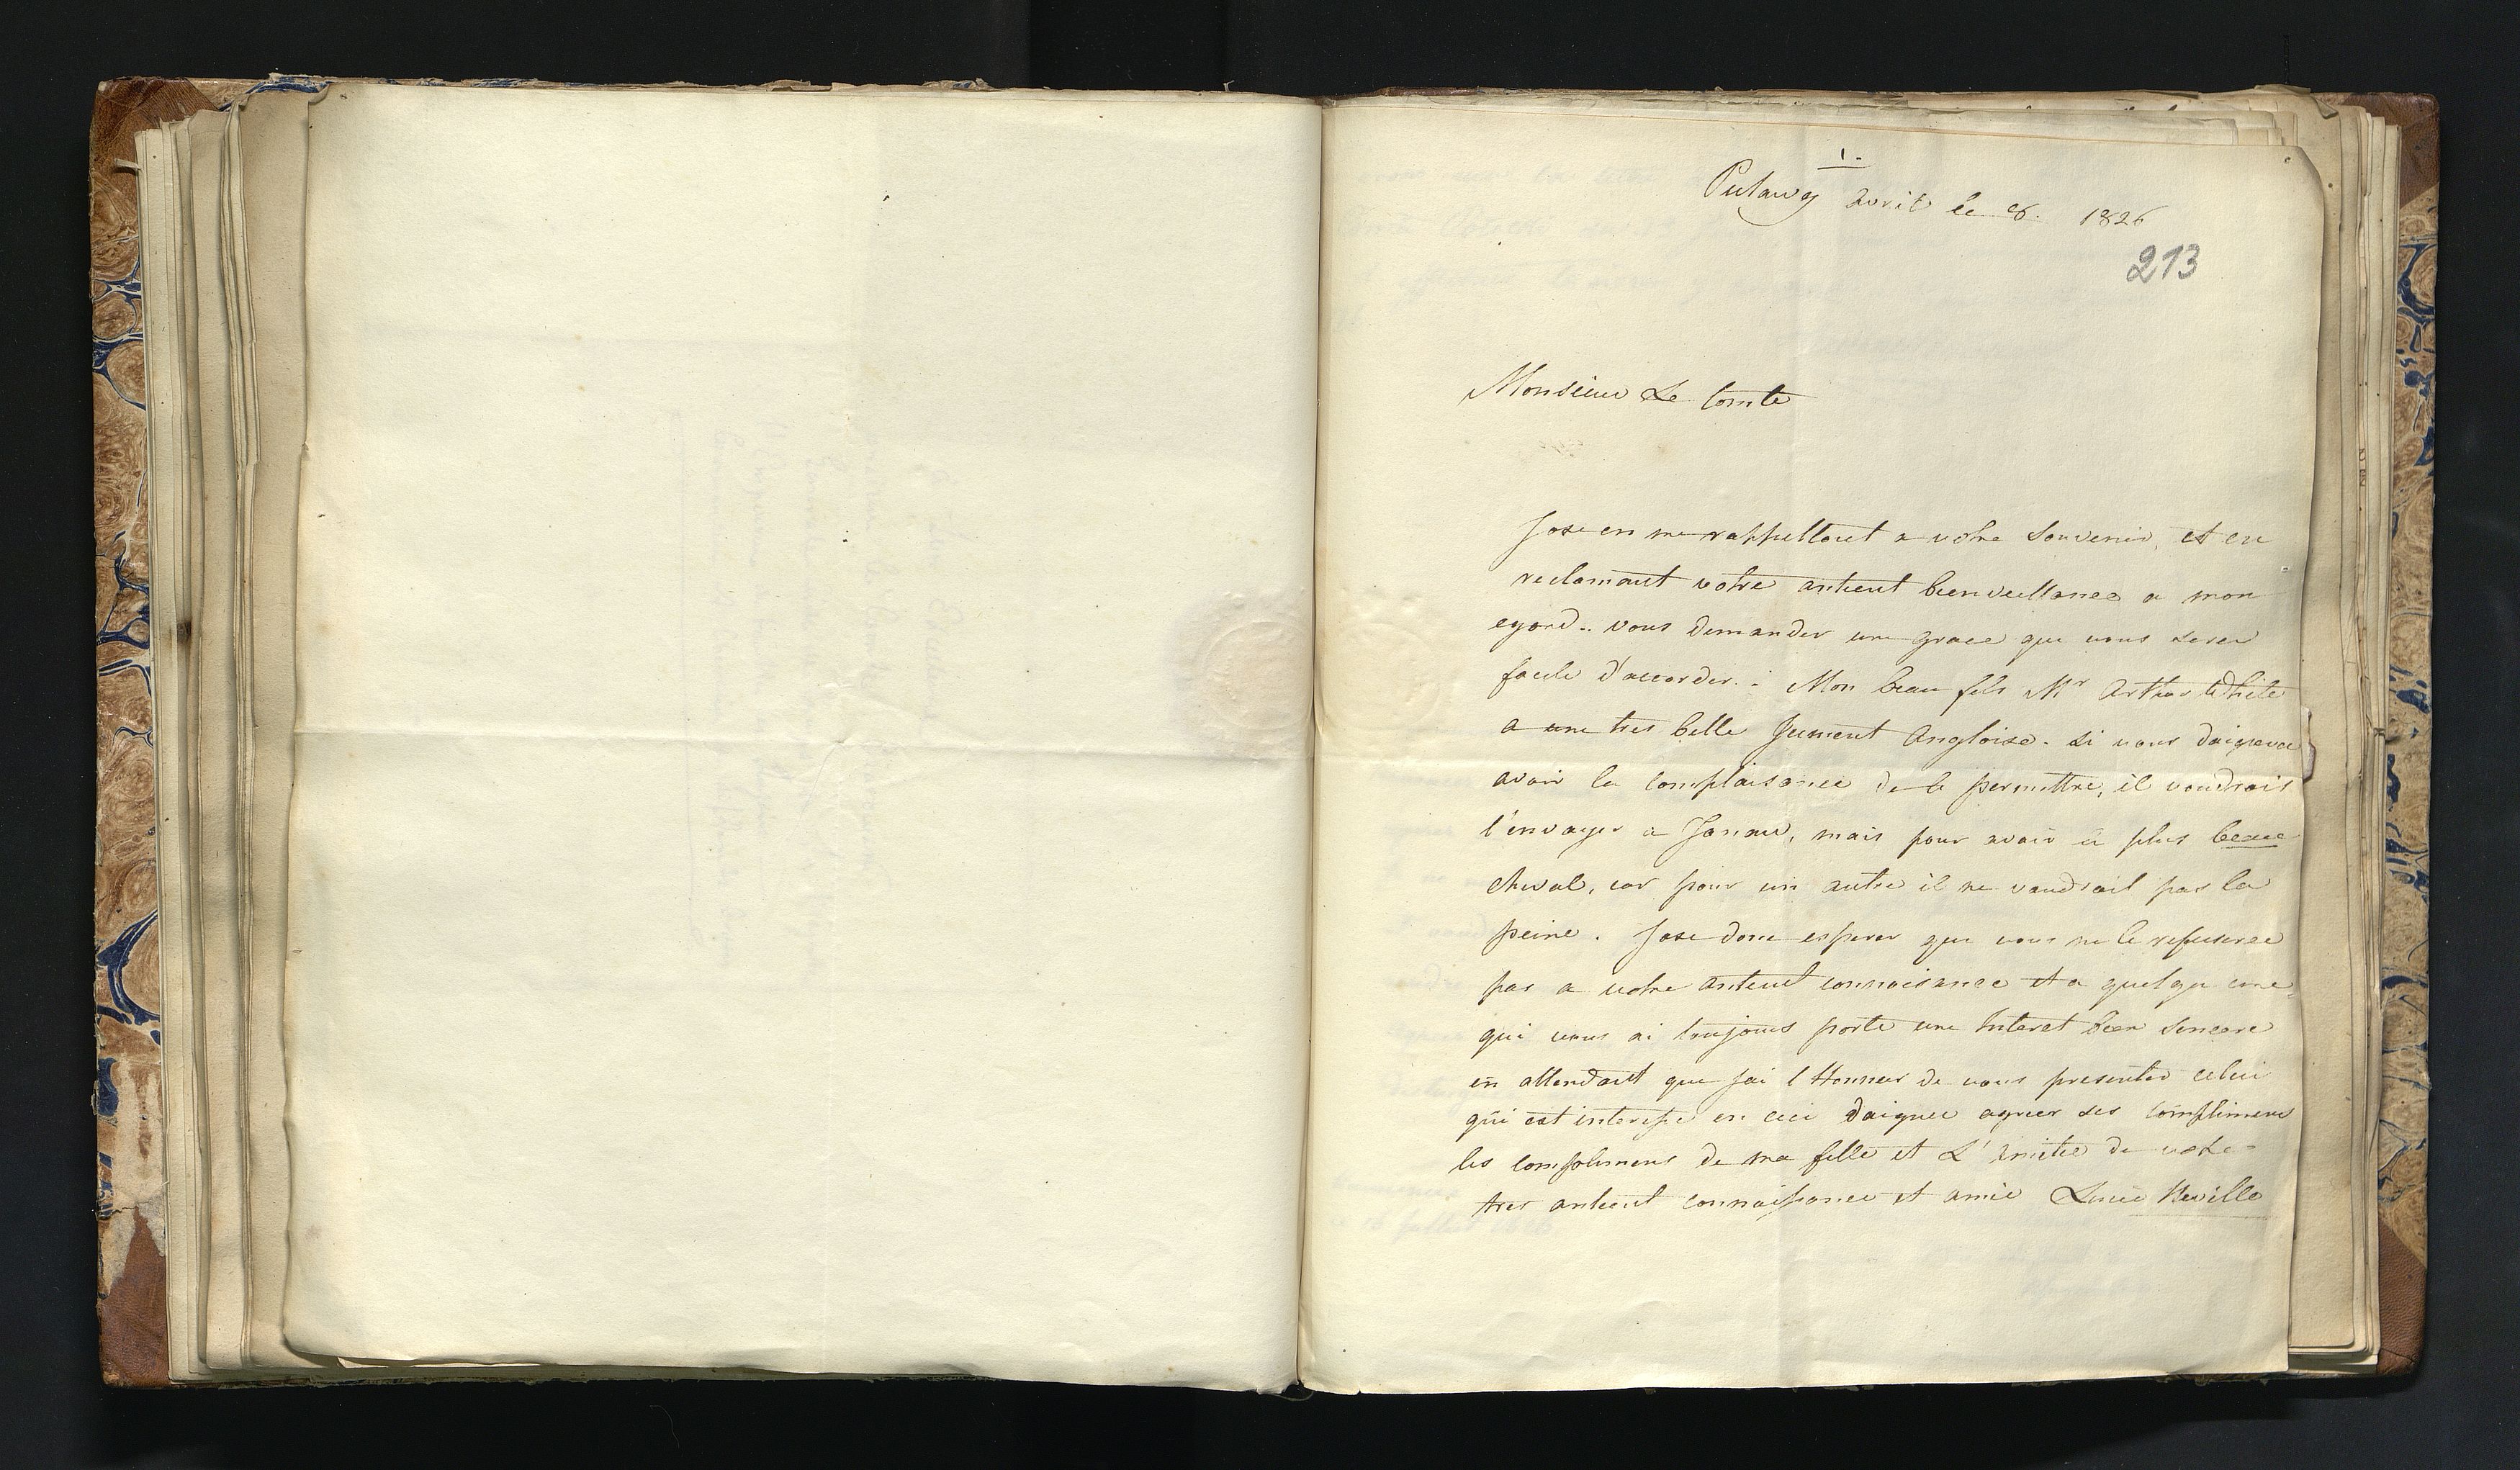 1.
Pulawy avril le 8. 1826
213
Monsieur Le Comte
Jose en me rappellant a votre Souvenir, et en
reclamant votre antient bienveillance a mon
egard.. vous demander une grace que vous serer
facile d'accorder. : Mon beau fils Mr Arthur White
a une tres belle Jument Angloise. si vous daignerai
avoir la Complaisance de le permettre, il voudrait
l'envoyer a Janow, mais pour avoir le plus beau
Cheval, car pour un autre il ne vaudrait pas la
peine. Jose donc esperer que vous ne le refuseree
pas a votre antient connaisance et a quelqu une
qui vous ai toujours porte une Interet bien Sincere
en attendant que jai l Honneur de vous presenter celui
qui est interesse en ceci daignee agreer ses complimens
les complimens de ma fille et L'
tres antient connaissance et amie Lucie Neville